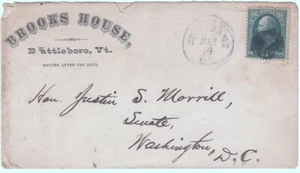 BROOKS HOUSE,
Brattleboro, Vt.
RETURN AFTER TEN DAYS.
MAY
4
Hon. Justin S. Morrill,
Senate,
Washington,
D.C.